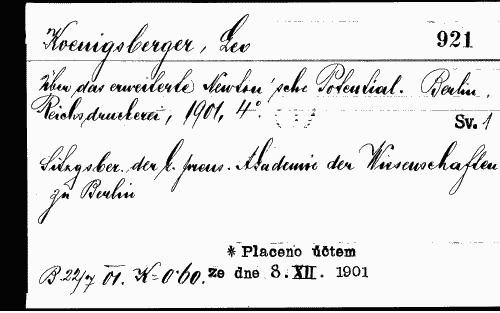 Koenigsberger, Leo
921
Über das erweiterte Newton'sche Potential. Berlin,
Reichsdruckerei, 1901, 4°.
Sv. 1
Sitzgsber. der k. preus. Akademie der Wissenschaften
zu Berlin
* Placeno účtem
B 22/7 01. K=0·60. ze dne 8. XII. 1901